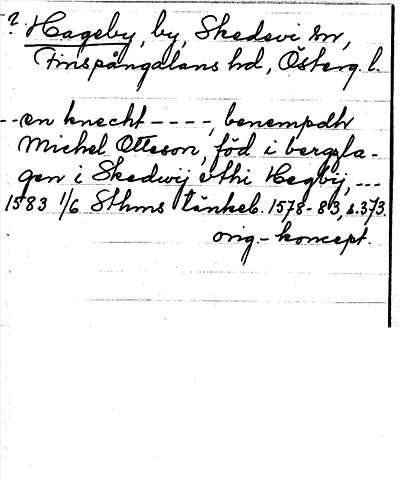 ? Hageby, by, Skedevi sn,
Finspångaläns hd, Österg. l.
-- en knecht ----, benempdh
Michel Otteson, föd i bergzla-
gen i Skedwij uthi Hegbij, ---
1583 1/6 Sthms tänkeb. 1578-83, s. 373.
orig-koncept.